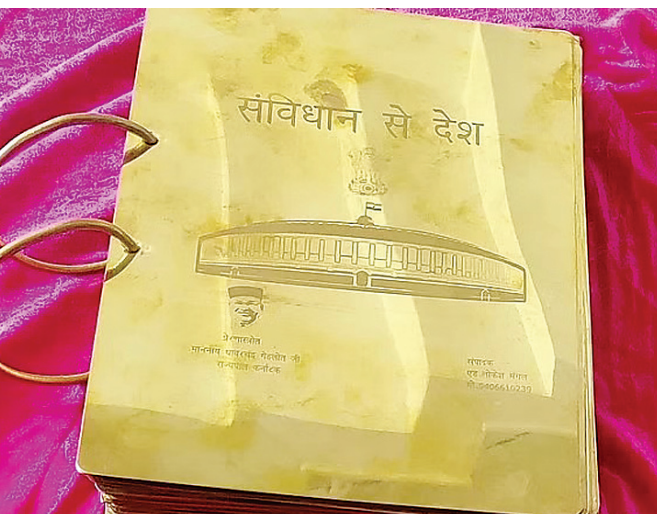 संविधान से देश
प्रेरणास्त्रोत
माननीय थावरचंद गेहलोत जी
राज्यपाल कर्नाटक
संपादक
एड. लोकेश मंगल
मो. 9406610239